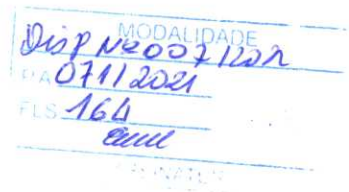 MODALIDADE
Disp Nº 007/2021
PA 071/2021
FLS 164